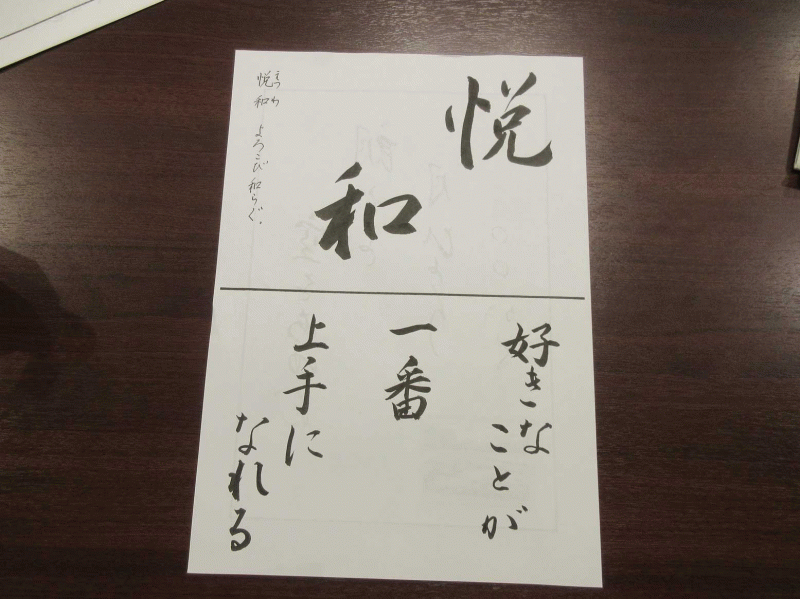 悦
和
悦和 よろこび和らぐ。
えつわ
好きな
ことが
一番
上手に
なれる